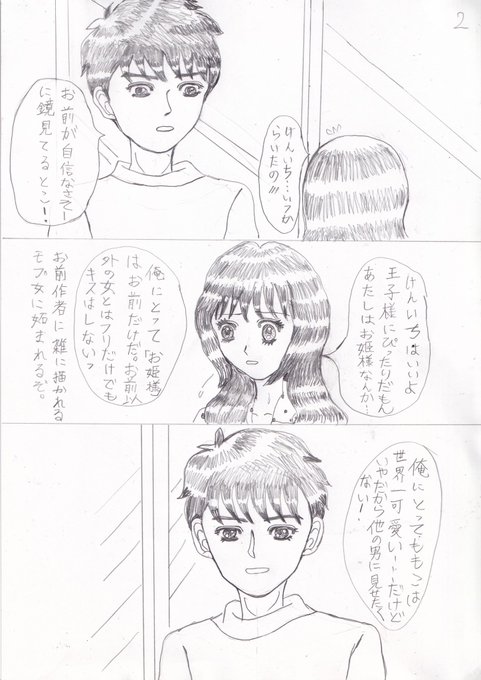 2
けんいち…いつか
らいたの!!!
お前が自信なさそー
に鏡見てるとこー。
けんいちはいいよ
王子様にぴったりだもん
あたしはお姫様なんか…
俺にとって「お姫様」
はお前だけだ。お前以
外の女とはフリだけでも
キスはしないっ
お前作者に雑に描かれる
モブ女に妬まれるぞ。
俺にとってももこは
世界一可愛い!…だけど
いやだから他の男に見せたく
ない!